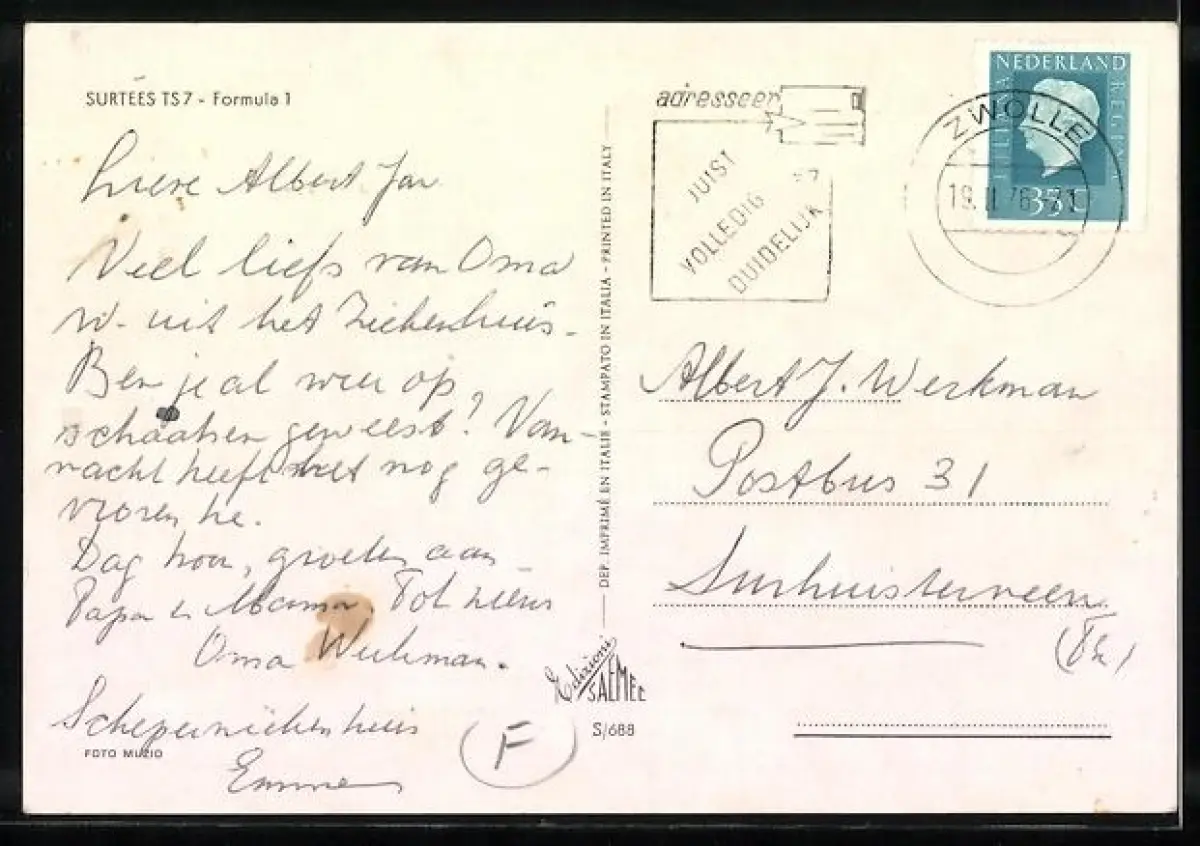 SURTÉES TS7 - Formula 1
Lieve Albert Jan
Veel liefs van Oma
W. uit het Ziekenhuis.
Ben je al weer op
schaatsen geweest? Van-
nacht heeft het nog ge-
vroren, he.
Dag hoor, groeten aan
Papa en Mama. Tot ziens
Oma Werkman.
Scheperziekenhuis
Emmen
FOTO MUZIO
F
DEP. IMPRIMÉ EN ITALIE - STAMPATO IN ITALIA - PRINTED IN ITALY
Edizioni
SAEMEC
S/688
adresseer
JUIST
VOLLEDIG
DUIDELIJK
NEDERLAND
JULIANA REGINA
ZWOLLE
Albert J. Werkman
Postbus 31
Surhuisterveen
(Fr.)